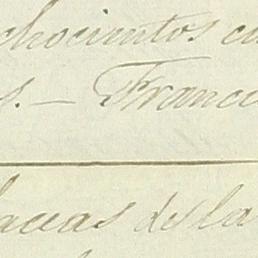 chocientos cu
s. — Franci
lacas de la